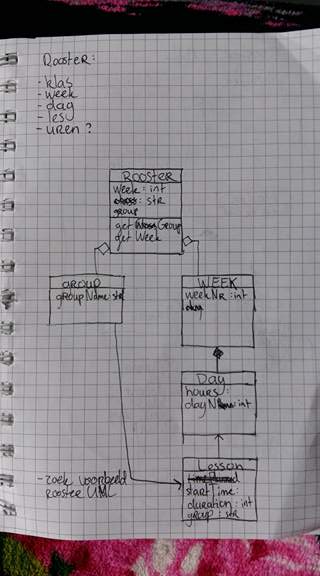 Rooster:
- klas
- week
- dag
- les
- uren ?
ROOSTER
week : int
: str
group
get Group
get Week
group
groupName: str
WEEK
weekNR : int
day
Day
hours :
dayN : int
Lesson
start time :
duration : int
group : str
- zoek voorbeeld
rooster UML